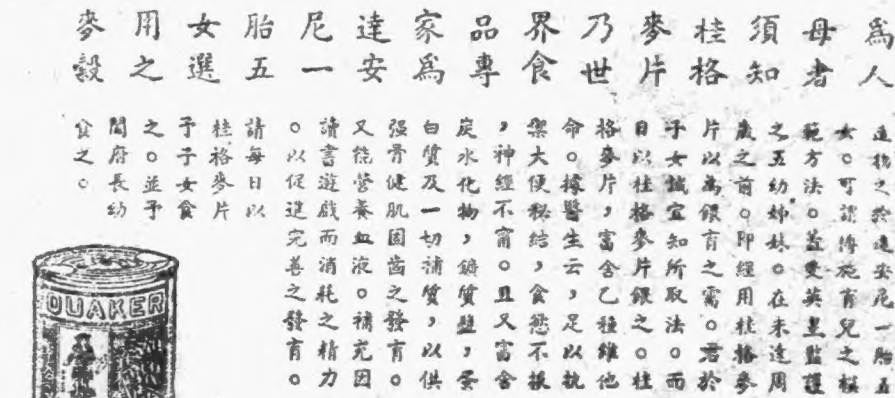 爲人
母者
須知
桂格
麥片
乃世
界食
品專
家爲
達安
尼一
胎五
女選
用之
麥穀
之於達安尼一胎五
女。可謂傳施育兒之模
範方法。蓋受英皇監護
之五幼姊妹。在未達周
歲之前。即經用桂格麥
片以為餵育之需。君於
子女誠宜知所取法。而
日以桂格麥片餵之。桂
格麥片,富含乙種維他
命。據醫生云,足以抗
禦大便秘結,食慾不振
,神經不甯。且又富含
炭水化物,鏽質鹽,蛋
白質及一切補質,以供
强骨健肌固齒之發育。
又能營養血液。補充因
讀書遊戲而消耗之精力
。以促進完善之發育。
請每日以
桂格麥片
予子女食
之。並予
閤府長幼
食之。
QUAKER